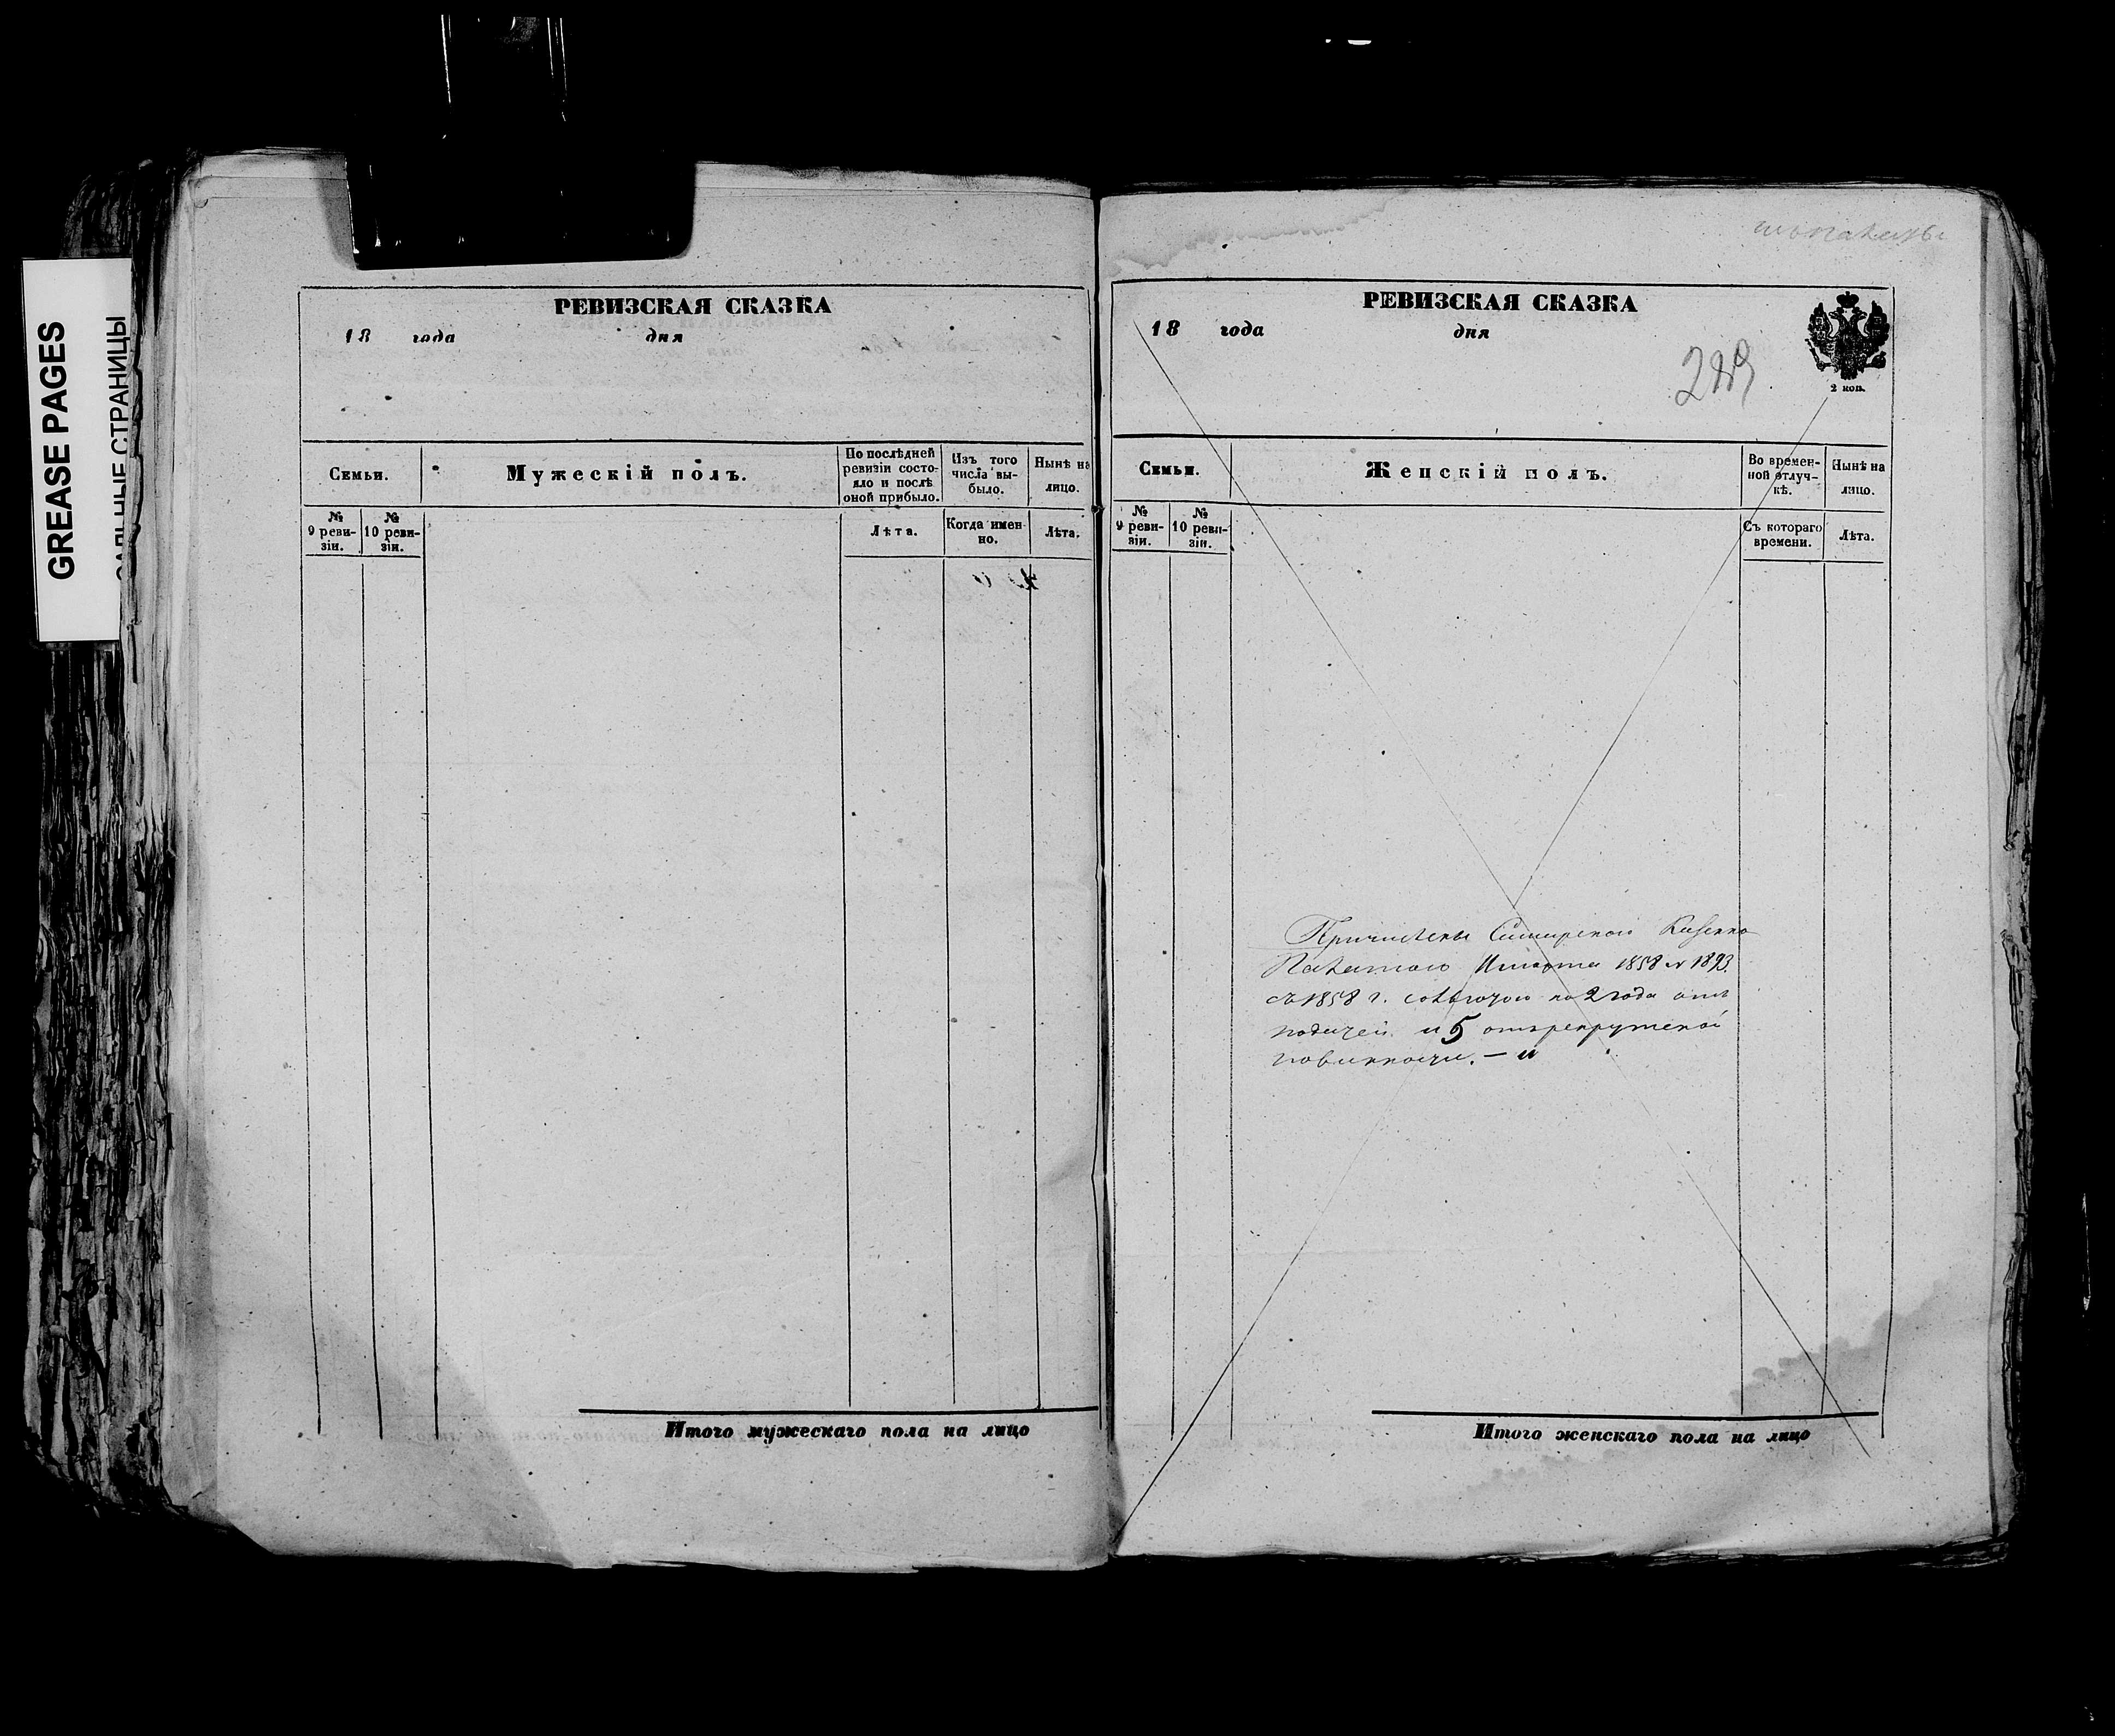 GREASE PAGES
САЛЬНЫЕ СТРАНИЦЫ
РЕВИЗСКАЯ СКАЗКА
18 года дня
Семьи.
Мужескій полъ.
По послѣдней ревизіи состо-
яло и послѣ
оной прибыло.
Изъ того
числа вы-
было.
Нынѣ на
лицо.
№
9 реви-
зіи.
№
10 реви-
зіи.
Лѣта.
Когда имен-
но.
Лѣта.
Итого мужескаго пола на лицо
РЕВИЗСКАЯ СКАЗКА
18 года дня
2 коп.
Семьи.
Женскій полъ.
Во времен-
ной отлуч-
кѣ.
Нынѣ на
лицо.
№
9 реви-
зіи.
№
10 реви-
зіи.
Съ котораго
времени.
Лѣта.
Причислены Симбирскою Казенно
Палатою 1858 № 1893
съ 1858 г. со льготою на 2 года отъ
податей и 5 отъ рекрутской
повинности. – и
Итого женскаго пола на лицо